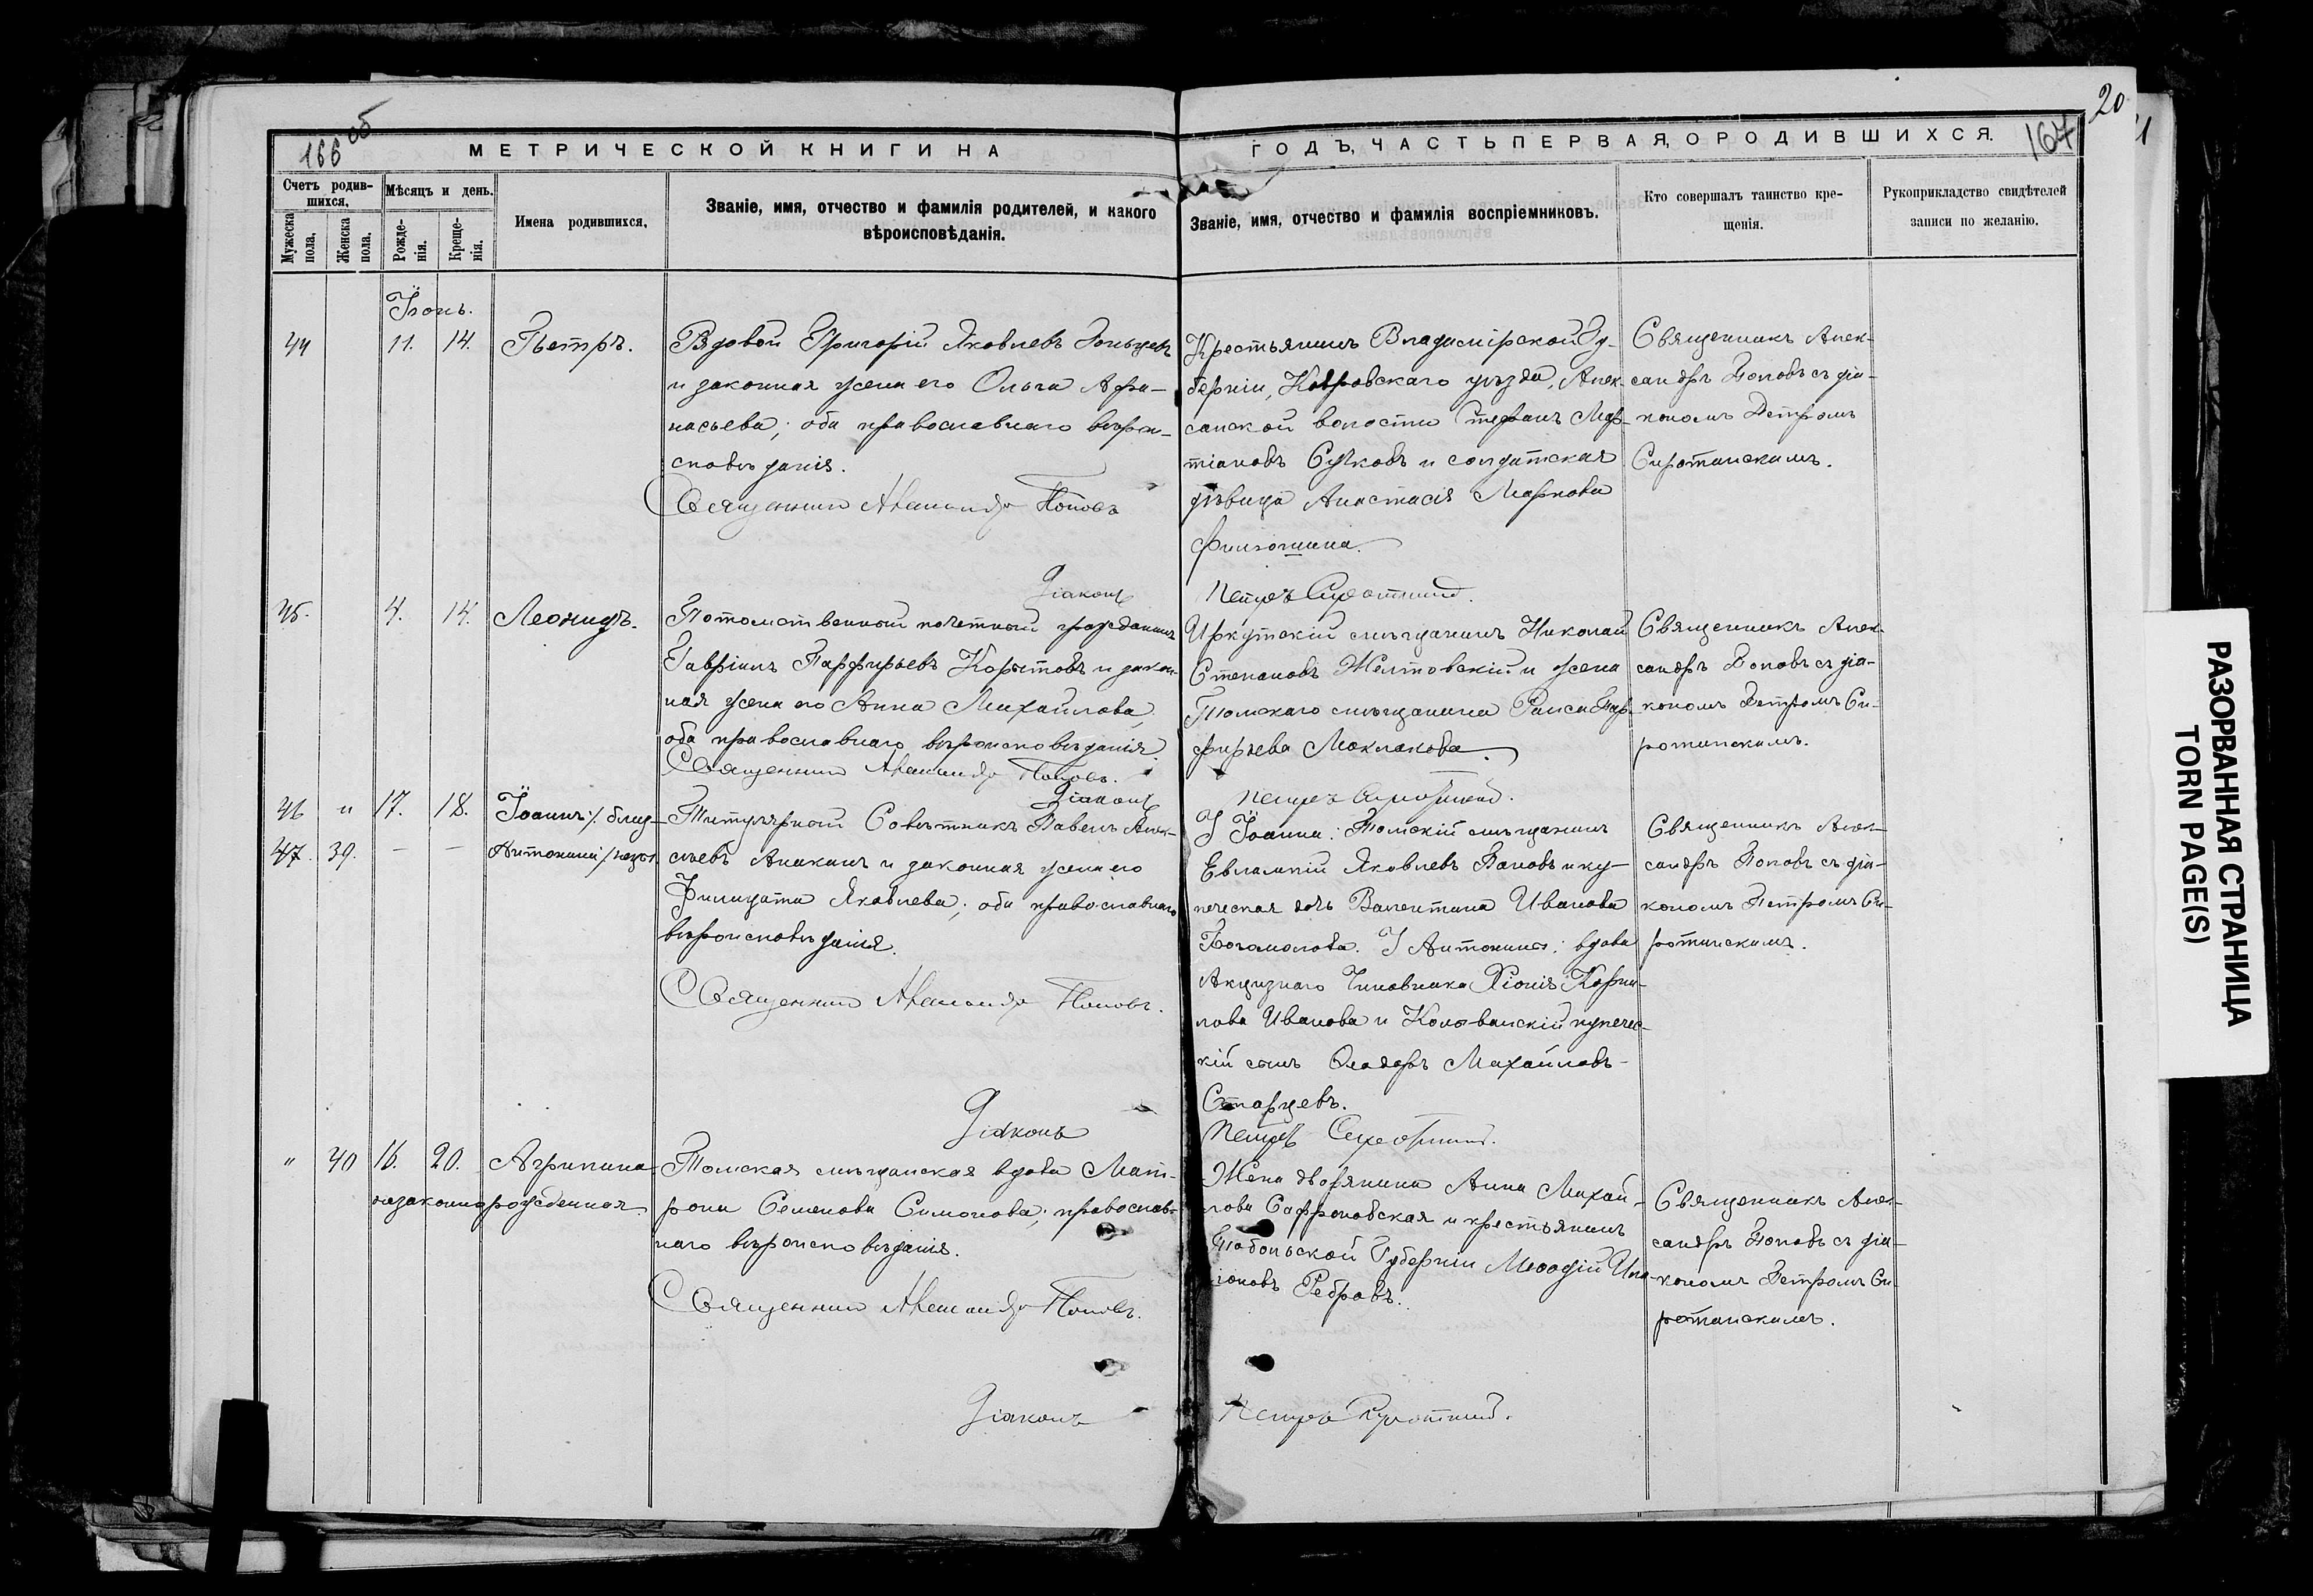 166 об
МЕТРИЧЕСКОЙ КНИГИ НА
ГОДЪ, ЧАСТЬ ПЕРВАЯ, О РОДИВШИХСЯ.
167
20
Счетъ родив-
шихся.
Мужеска
пола.
Женска
пола.
Мѣсяцъ и день.
Рожде-
нія.
Креще-
нія.
Имена родившихся.
Званіе, имя, отчество и фамилія родителей, и какого
вѣроисповѣданія.
Званіе, имя, отчество и фамилія воспріемниковъ.
Кто совершалъ таинство кре-
щенія.
Рукоприкладство свидѣтелей
записи по желанію.
Іюнь.
44 11. 14. Петръ.
Рядовой Григорій Яковлевъ
и законная жена его Ольга Афа-
насьева; оба православнаго вѣрои-
сповѣданія.
Священникъ Александръ Поповъ
Крестьянинъ Владимірской Гу-
берніи, Ковровскаго уѣзда, Алек-
санской волости Стефанъ Мар-
тіановъ и солдатская
дѣвица Анастасія Маркова
Священникъ Алек-
сандръ Поповъ съ діа-
кономъ Петромъ
Сиротинскимъ.
Діаконъ
Петръ Сиротинскій.
45. 4. 14. Леонидъ.
Потомственный почетный гражданинъ
Гавріилъ Парфирьевъ Корытовъ и закон-
ная жена его Анна Михайлова,
оба православнаго вѣроисповѣданія.
Священникъ Александръ Поповъ.
Иркутскій мѣщанинъ Николай
Степановъ Желтовскій и жена
Томскаго мѣщанина Раиса Пар-
фирьева Моклакова.
Священникъ Алек-
сандръ Поповъ съ діа-
кономъ Петромъ Си-
ротинскимъ.
Діаконъ
Петръ Сиротинскій.
46 " 17. 18. Іоаннъ
47. 39. — — Антонина
Титулярный Совѣтникъ Павелъ Алек-
сѣевъ Анакинъ и законная жена его
Филицата Яковлева; оба православнаго
вѣроисповѣданія.
Священникъ Александръ Поповъ.
У Іоанна: Томскій мѣщанинъ
Евлампій Яковлевъ Пановъ и ку-
печеская дочь Валентина Иванова
Богомолова. У Антонины: вдова
Акцизнаго Чиновника Хіонія Корни-
лова Иванова и Колыванскій купечес-
кій сынъ Ѳеодоръ Михайловъ
Старцевъ.
Священникъ Алек-
сандръ Поповъ съ діа-
кономъ Петромъ Си-
ротинскимъ.
Діаконъ
Петръ Сиротинскій.
" 40 16. 20. Агрипина
незаконнорожденная.
Томская мѣщанская вдова Мат-
рона Семенова Симонова; православ-
наго вѣроисповѣданія.
Священникъ Александръ Поповъ.
Жена дворянина Анна Михай-
лова Сафроновская и крестьянинъ
Тобольской Губерніи Меѳодій
Ребровъ.
Священникъ Алек-
сандръ Поповъ съ діа-
кономъ Петромъ Си-
ротинскимъ.
Діаконъ
Петръ Сиротинскій.
РАЗОРВАННАЯ СТРАНИЦА
TORN PAGE(S)